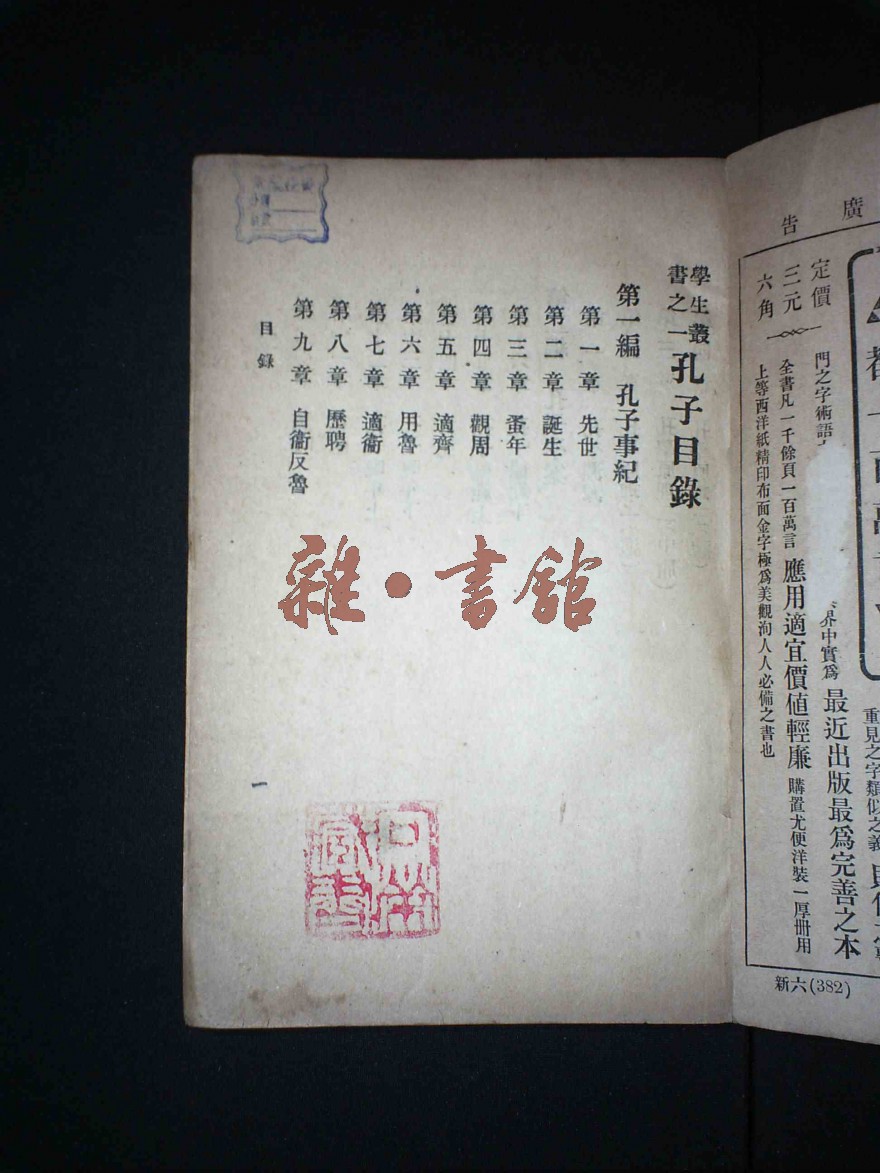 廣告
定價
三元
六角
重見之字類似之義
最近出版最爲完善之本
界中實爲
門之字術語
應用適宜價値輕廉
購置尤便洋裝一厚册用
全書凡一千餘頁一百萬言
上等西洋紙精印布面金字極爲美觀洵人人必備之書也
新六(382)
學生叢書之一 孔子目錄
第一編 孔子事紀
第一章 先世
第二章 誕生
第三章 蚤年
第四章 觀周
第五章 適齊
第六章 用魯
第七章 適衞
第八章 歷聘
第九章 自衞反魯
目錄
一
雜·書館